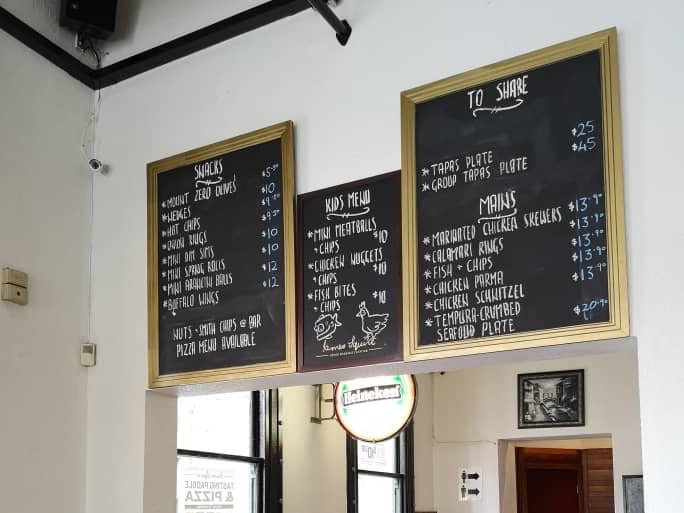 SNACKS
* MOUNT ZERO OLIVES $5.50
* WEDGES $10
* HOT CHIPS $9.00
* ONION RINGS $9.50
* MINI DIM SIMS $10
* MINI SPRING ROLLS $10
* MINI ARANCINI BALLS $12
* BUFFALO WINGS $12
NUTS - SMITH CHIPS @ BAR
PIZZA MENU AVAILABLE
KIDS MENU
* MINI MEATBALLS
+ CHIPS $10
* CHICKEN NUGGETS
+ CHIPS $10
* FISH BITES
+ CHIPS $10
James Squire
TO SHARE
* TAPAS PLATE $25
* GROUP TAPAS PLATE $45
MAINS
* MARINATED CHICKEN SKEWERS $13.90
* CALAMARI RINGS $13.90
* FISH + CHIPS $13.90
* CHICKEN PARMA $13.90
* CHICKEN SCHNITZEL $13.90
* TEMPURA-CRUMBED
SEAFOOD PLATE $20.90
Heineken
TASTING PADDLE
& PIZZA